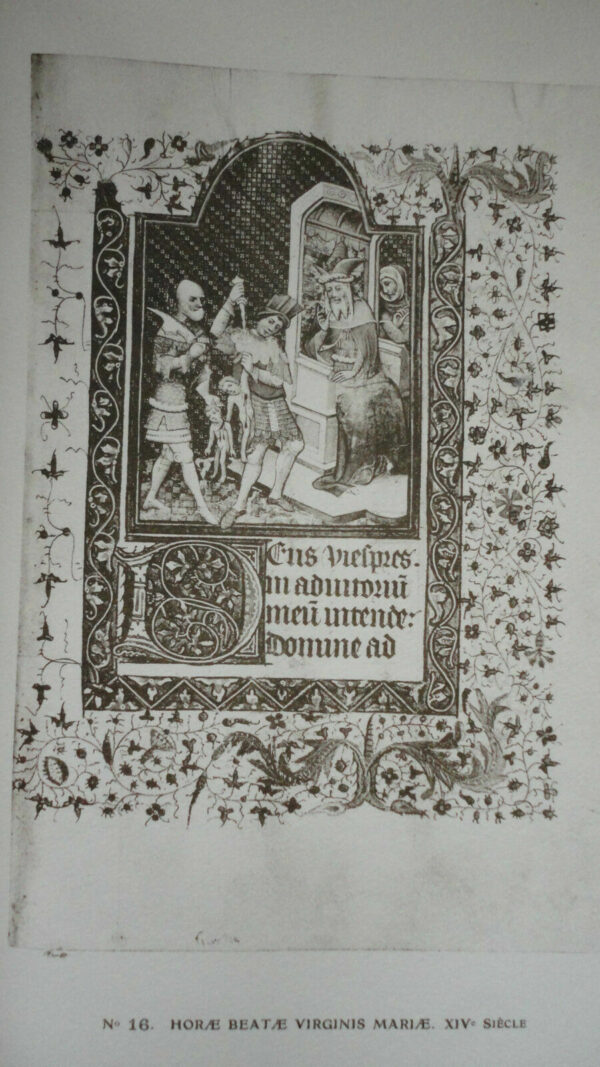 Deus viespres.
in adiutoriū
meū intende:
Domine ad
Nº 16. HORÆ BEATÆ VIRGINIS MARIÆ. XIVᵉ SIÈCLE